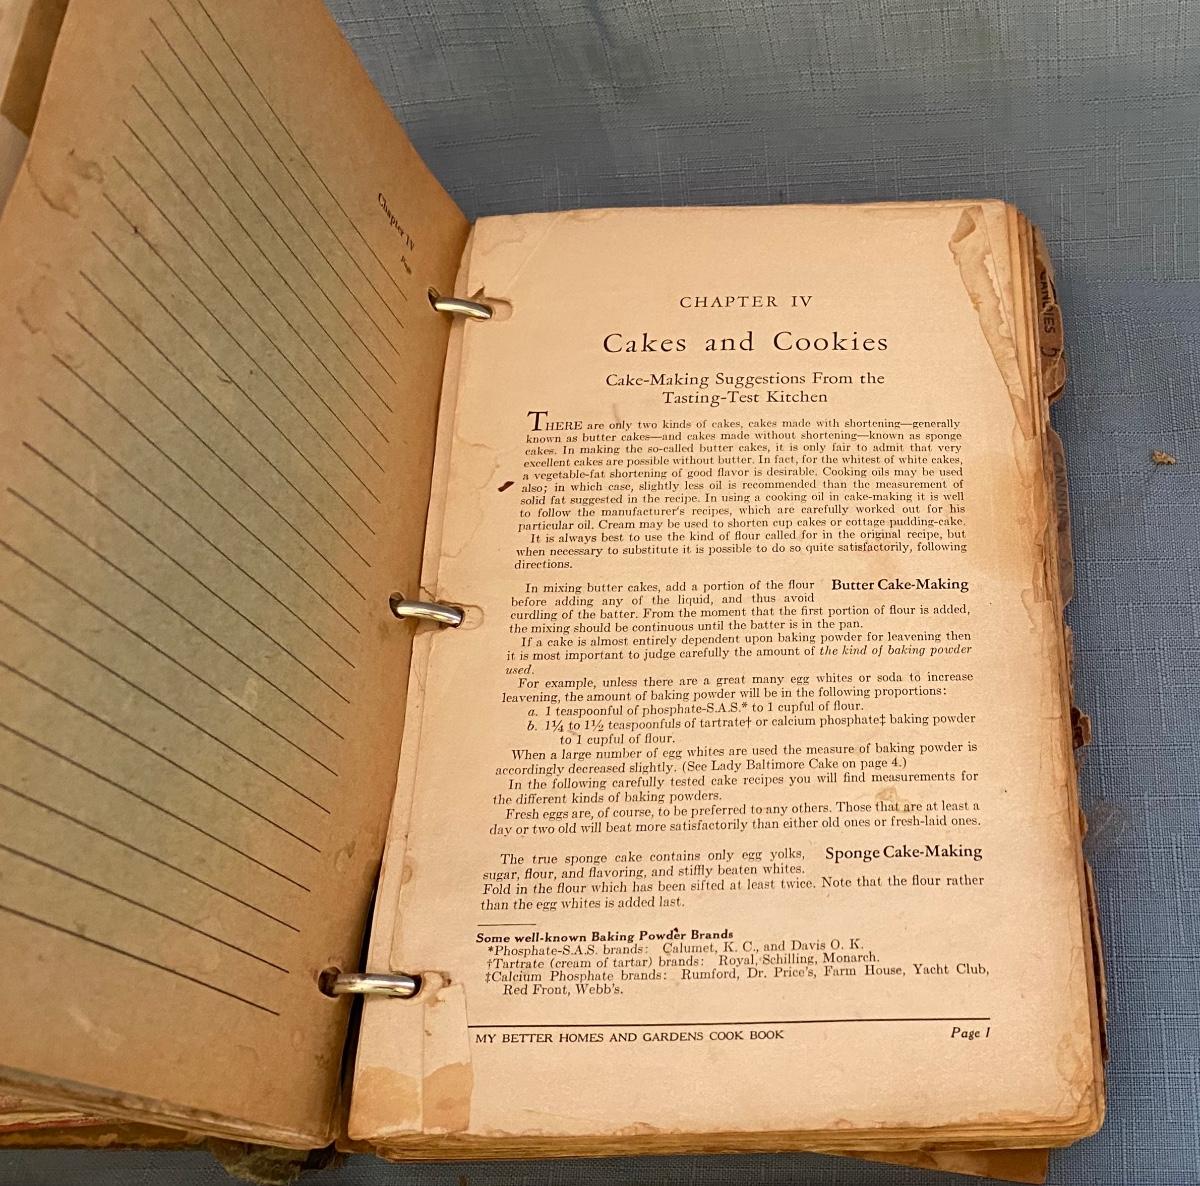 Chapter IV
Page
CHAPTER IV
Cakes and Cookies
Cake-Making Suggestions From the
Tasting-Test Kitchen
THERE are only two kinds of cakes, cakes made with shortening—generally
known as butter cakes—and cakes made without shortening—known as sponge
cakes. In making the so-called butter cakes, it is only fair to admit that very
excellent cakes are possible without butter. In fact, for the whitest of white cakes,
a vegetable-fat shortening of good flavor is desirable. Cooking oils may be used
also; in which case, slightly less oil is recommended than the measurement of
solid fat suggested in the recipe. In using a cooking oil in cake-making it is well
to follow the manufacturer's recipes, which are carefully worked out for his
particular oil. Cream may be used to shorten cup cakes or cottage pudding-cake.
It is always best to use the kind of flour called for in the original recipe, but
when necessary to substitute it is possible to do so quite satisfactorily, following
directions.
Butter Cake-Making
In mixing butter cakes, add a portion of the flour
before adding any of the liquid, and thus avoid
curdling of the batter. From the moment that the first portion of flour is added,
the mixing should be continuous until the batter is in the pan.
If a cake is almost entirely dependent upon baking powder for leavening then
it is most important to judge carefully the amount of the kind of baking powder
used.
For example, unless there are a great many egg whites or soda to increase
leavening, the amount of baking powder will be in the following proportions:
a. 1 teaspoonful of phosphate-S.A.S.* to 1 cupful of flour.
b. 1¼ to 1½ teaspoonfuls of tartrate† or calcium phosphate‡ baking powder
to 1 cupful of flour.
When a large number of egg whites are used the measure of baking powder is
accordingly decreased slightly. (See Lady Baltimore Cake on page 4.)
In the following carefully tested cake recipes you will find measurements for
the different kinds of baking powders.
Fresh eggs are, of course, to be preferred to any others. Those that are at least a
day or two old will beat more satisfactorily than either old ones or fresh-laid ones.
Sponge Cake-Making
The true sponge cake contains only egg yolks,
sugar, flour, and flavoring, and stiffly beaten whites.
Fold in the flour which has been sifted at least twice. Note that the flour rather
than the egg whites is added last.
Some well-known Baking Powder Brands
*Phosphate-S.A.S. brands: Calumet, K. C., and Davis O. K.
†Tartrate (cream of tartar) brands: Royal, Schilling, Monarch.
‡Calcium Phosphate brands: Rumford, Dr. Price's, Farm House, Yacht Club,
Red Front, Webb's.
MY BETTER HOMES AND GARDENS COOK BOOK
Page 1
CANDIES 5